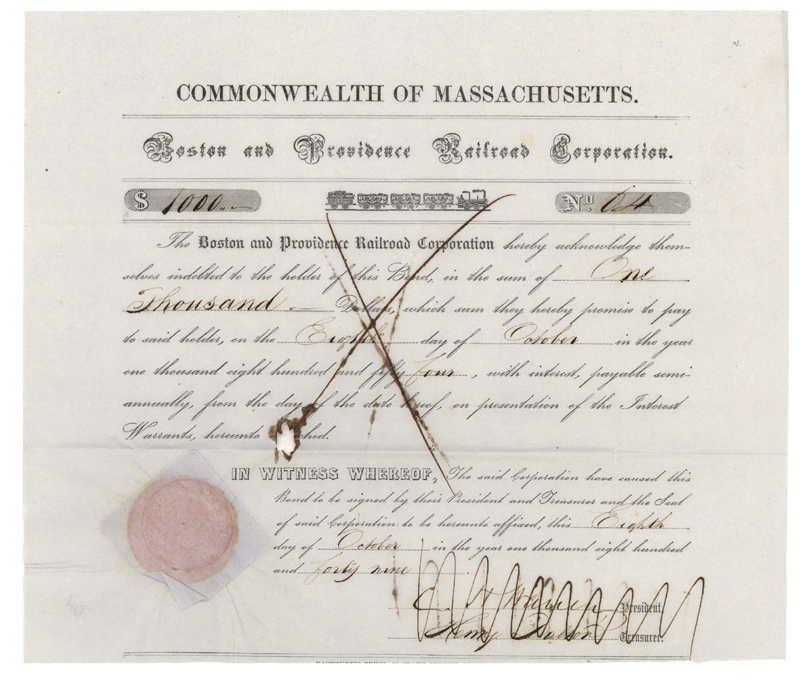 COMMONWEALTH OF MASSACHUSETTS.
Boston and Providence Railroad Corporation.
$ 1000.. No. 64
The Boston and Providence Railroad Corporation hereby acknowledge them-
selves indebted to the holder of this Bond, in the sum of One
Thousand Dollars, which sum they hereby promise to pay
to said holder, on the Eighth day of October in the year
one thousand eight hundred and fifty four, with interest, payable semi-
annually, from the day of the date hereof, on presentation of the Interest
Warrants, hereunto ched.
IN WITNESS WHEREOF, The said Corporation have caused this
Bond to be signed by their President and Treasurer and the Seal
of said Corporation to be hereunto affixed, this Eighth
day of October in the year one thousand eight hundred
and forty nine.
President.
Henry Treasurer.